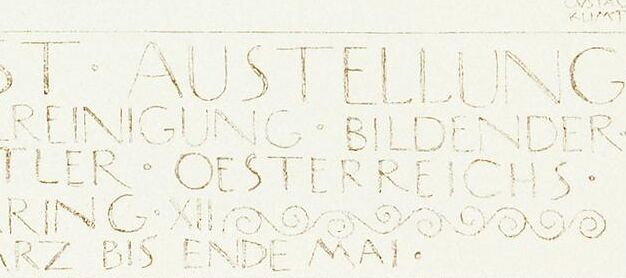 KLIMT
ST · AUSTELLUNG
EREINIGUNG · BILDENDER ·
TLER · OESTERREICHS ·
RING · XII.
ARZ BIS ENDE MAI ·